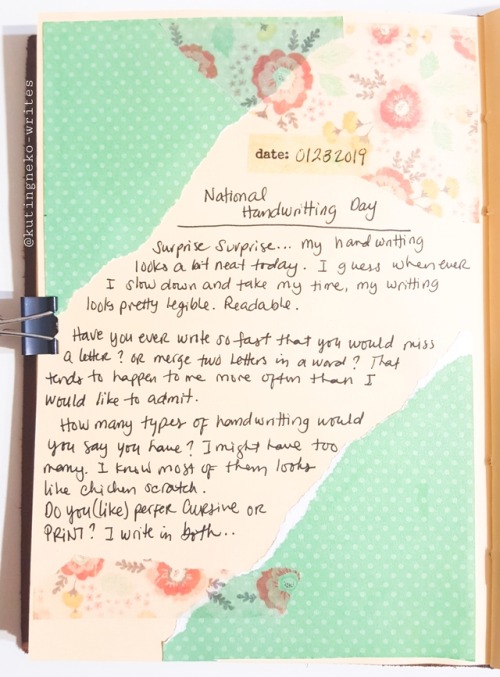 @kutingneko-writes
date: 01232019
National
Handwritting Day
Surprise Surprise... my handwritting
looks a bit neat today. I guess whenever
I slow down and take my time, my writting
looks pretty legible. Readable.
Have you ever write so fast that you would miss
a letter? or merge two letters in a word? That
tends to happen to me more often than I
would like to admit.
How many types of handwritting would
you say you have? I might have too
many. I know most of them looks
like chicken scratch.
Do you (like) perfer Cursive or
PRiNT? I write in both..